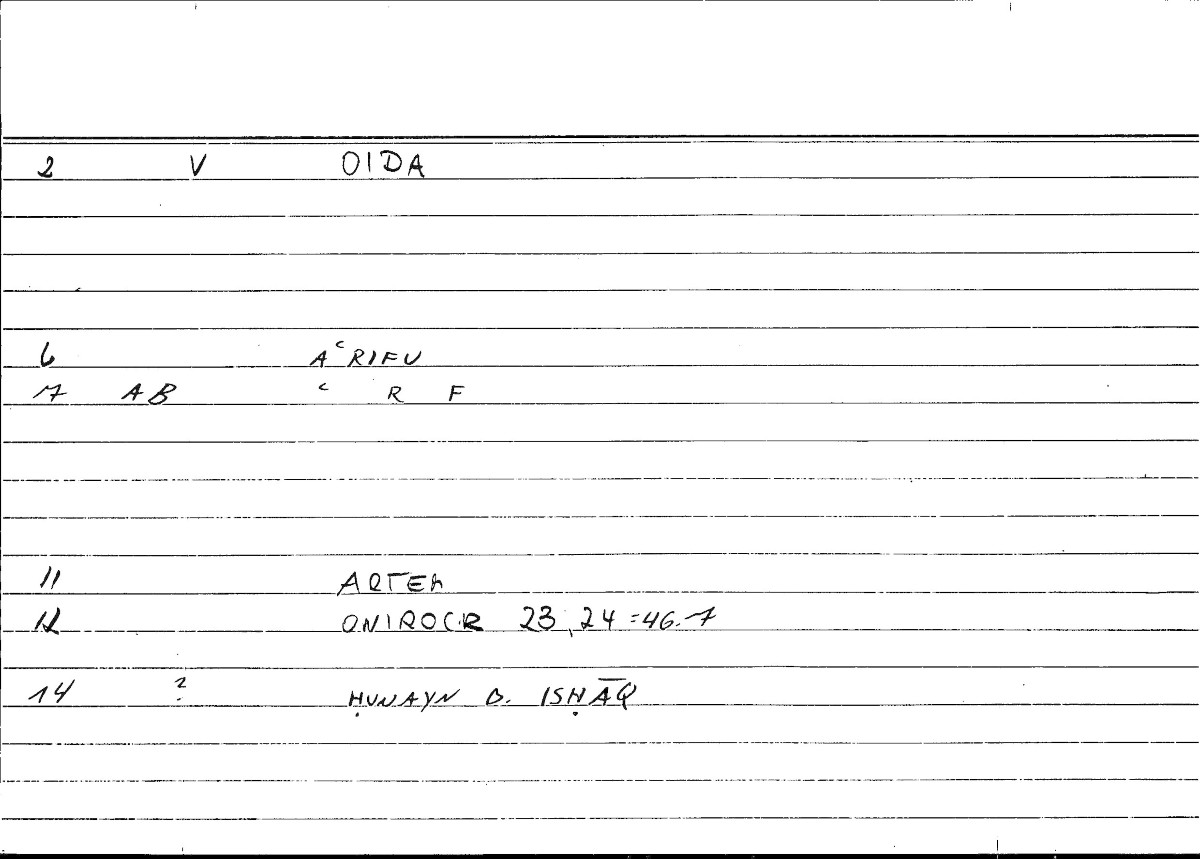 2 V OIDA
6 AʿRIFU
7 AB ʿ R F
11 ARTEM
12 ONIROCR 23,24=46.7
14 ? ḤUNAYN B. ISḤĀQ